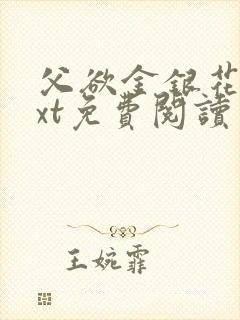 父欲金銀花
xt免費閱讀
王婉霏